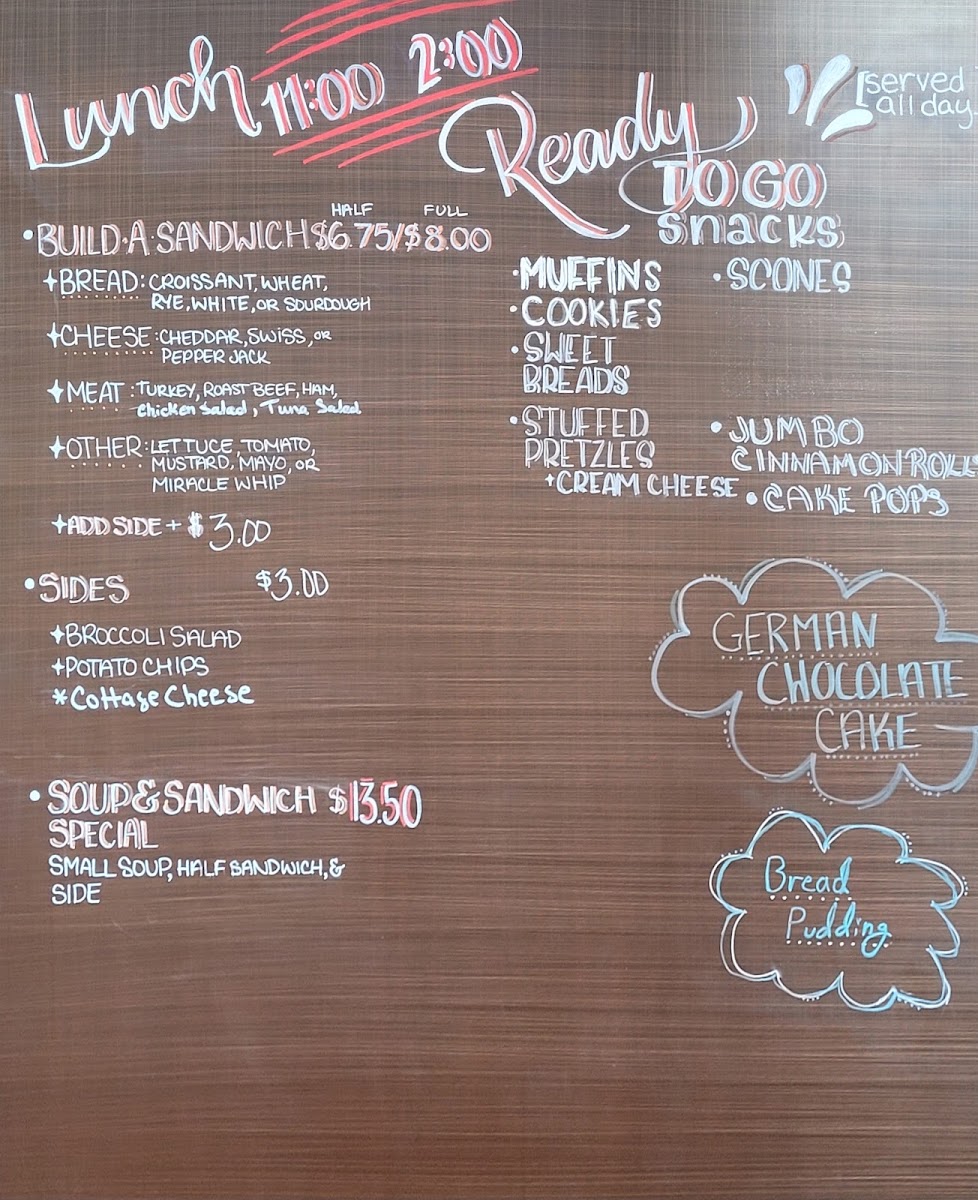 Lunch 11:00 2:00
HALF FULL
• BUILD·A·SANDWICH $6.75/$8.00
✦BREAD: CROISSANT, WHEAT,
RYE, WHITE, OR SOURDOUGH
✦CHEESE: CHEDDAR, SWISS, OR
PEPPER JACK
✦MEAT: TURKEY, ROAST BEEF, HAM,
chicken Salad, Tuna Salad
✦OTHER: LETTUCE, TOMATO,
MUSTARD, MAYO, OR
MIRACLE WHIP
✦ADD SIDE + $3.00
• SIDES $3.00
✦BROCCOLI SALAD
✦POTATO CHIPS
*Cottage Cheese
• SOUP & SANDWICH $13.50
SPECIAL
SMALL SOUP, HALF SANDWICH, &
SIDE
Ready
TO GO
snacks
[served
all day
• MUFFINS
• COOKIES
• SWEET
BREADS
• STUFFED
PRETZLES
+CREAM CHEESE
• SCONES
• JUMBO
CINNAMON ROLL
• CAKE POPS
GERMAN
CHOCOLATE
CAKE
Bread
Pudding